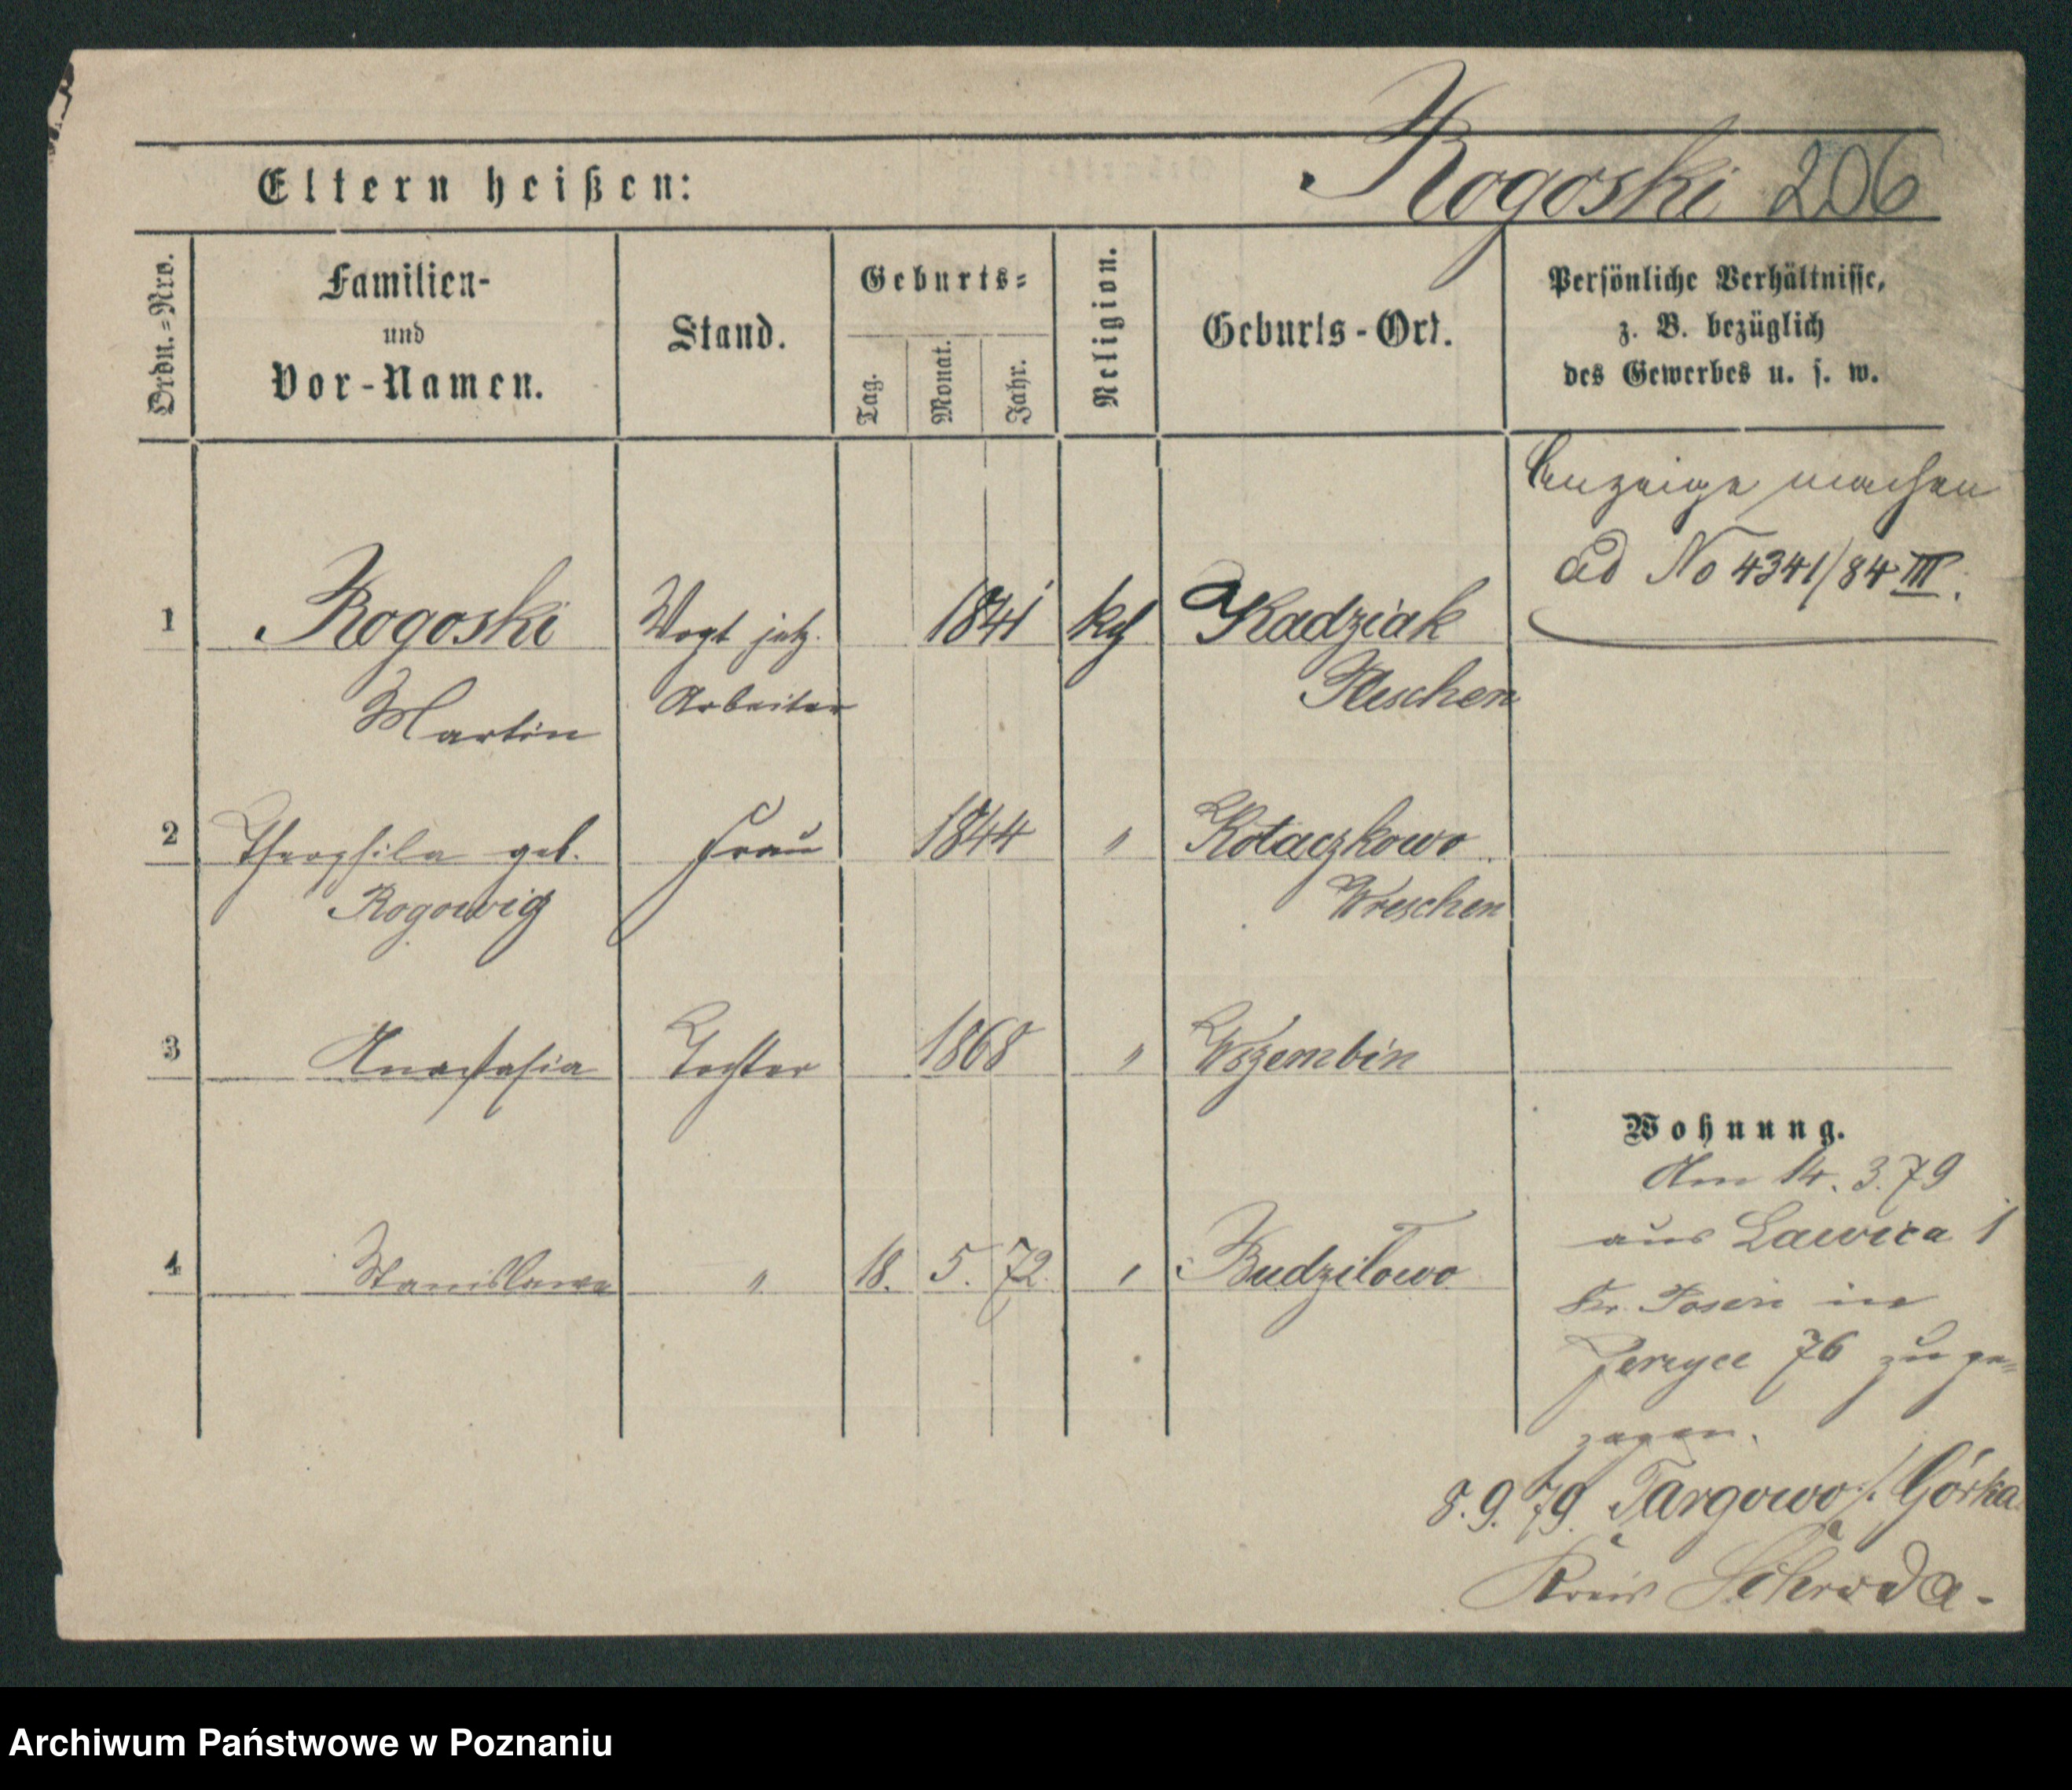 Rogoski 206
Eltern heißen:
Ordn.=Nro.
Familien-
und
Vor-Namen.
Stand.
Geburts=
Tag.
Monat.
Jahr.
Religion.
Geburts-Ort.
Persönliche Verhältnisse,
z. B. bezüglich
des Gewerbes u. s. w.
Anzeige machen
ad No 4341/84 III.
1 Rogoski Vogt jetz. 1841 kth Radziak
Martin Arbeiter Pleschen
2 Theophila geb. Frau 1844 " Kołaczkowo
Wreschen
3 Anastasia Tochter 1868 " Wszembin
4 Stanislawa " 18. 5. 72. " Budziłowo
Wohnung.
Am 14. 3. 79
aus Lawica
Kr. Posen in
Jerzyce 76 zuge=
zogen.
8. 9. 79. Targowo Górka
Kreis Schroda.
Archiwum Państwowe w Poznaniu